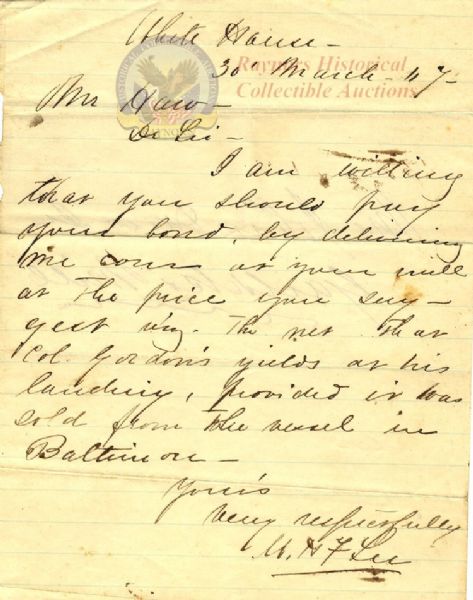 White House -
30 March - 67 -
Raynors Historical
Collectible Auctions
Mr
Dr Sir -
I am willing
that you should pay
your bond, by delivering
me corn at your mill
at the price you sug-
gest viz. The net that
Col. Gordon's yields at his
landing, provided it was
sold from the vessel in
Baltimore -
Yours
very respectfully
W. H. F. Lee